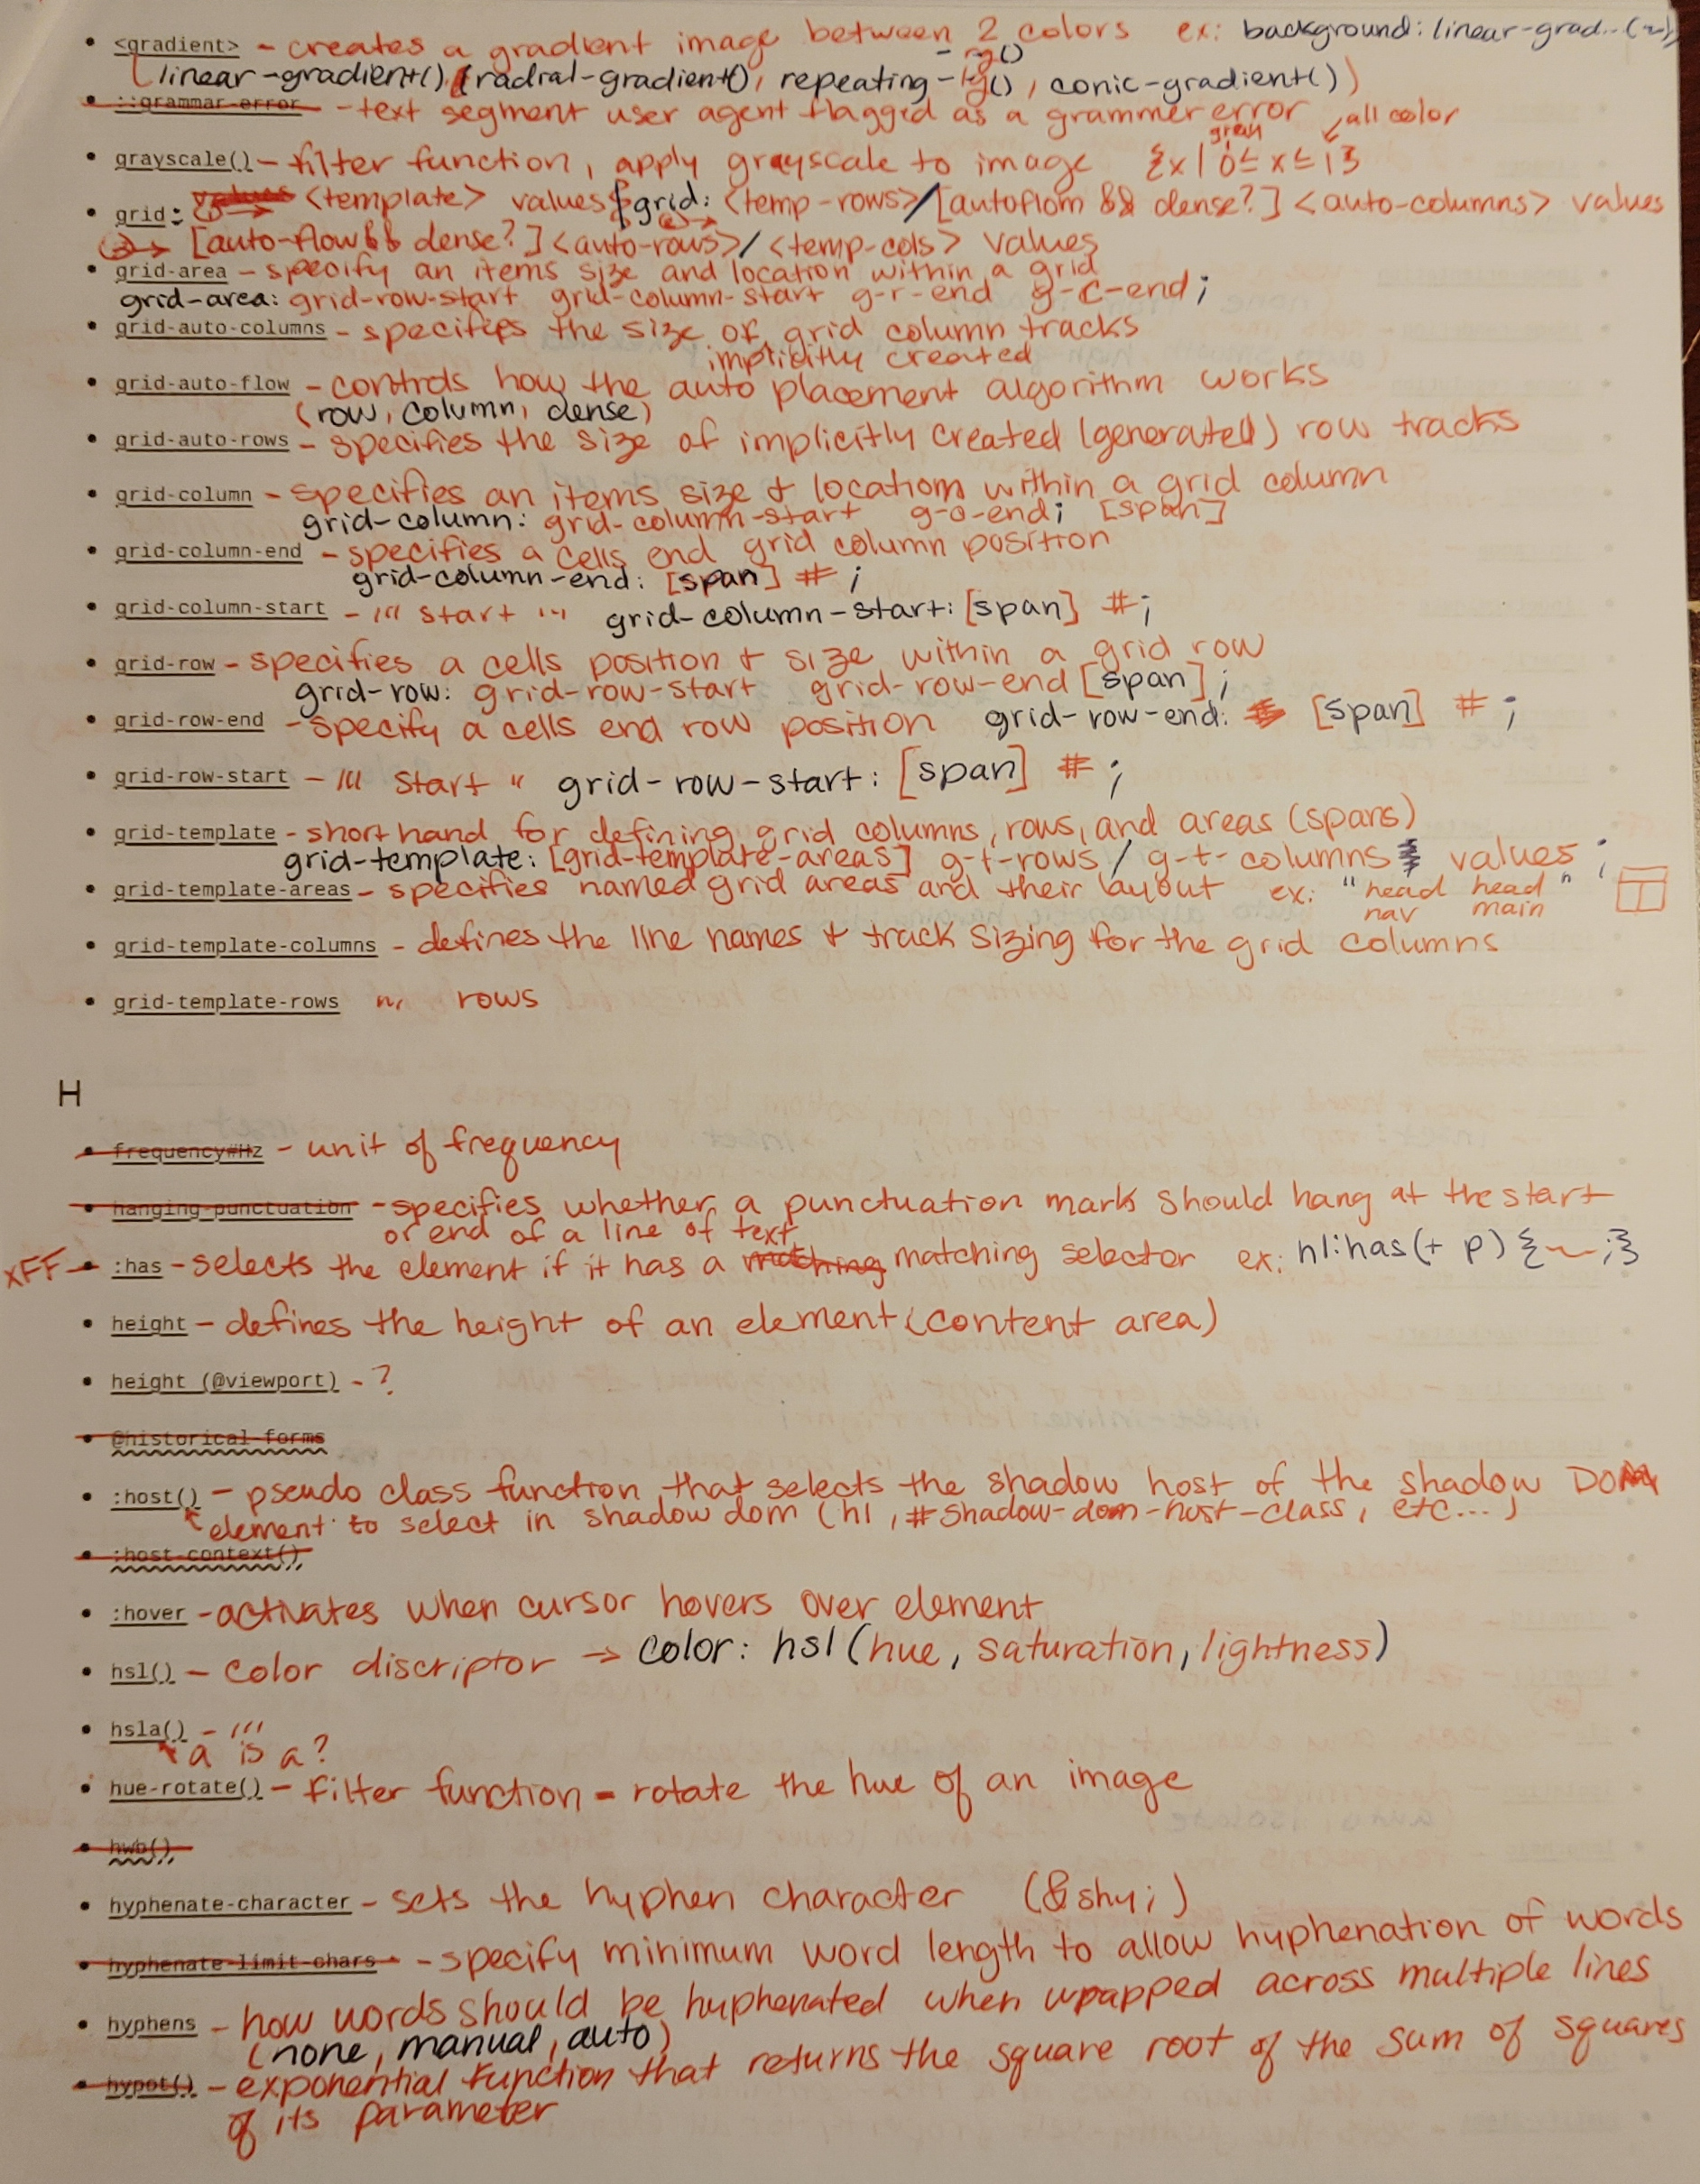 • <gradient> - creates a gradient image between 2 colors ex: background: linear-grad..(~);
(linear-gradient(), radial-gradient(), repeating-lg(), -rg(), conic-gradient())
• ::grammar-error - text segment user agent flagged as a grammer error
• grayscale() - filter function, apply grayscale to image {x | 0 ≤ x ≤ 1} gray all color
• grid: <template> values grid: <temp-rows>/[autoflom && dense?] <auto-columns> values
[auto-flow && dense?] <auto-rows>/<temp-cols> values
• grid-area - specify an items size and location within a grid
grid-area: grid-row-start grid-column-start g-r-end g-c-end;
• grid-auto-columns - specifies the size of grid column tracks
implicitly created
• grid-auto-flow - controls how the auto placement algorithm works
(row, column, dense)
• grid-auto-rows - specifies the size of implicitly created (generated) row tracks
• grid-column - specifies an items size & location within a grid column
grid-column: grid-column-start g-c-end; [span]
• grid-column-end - specifies a cells end grid column position
grid-column-end: [span] # ;
• grid-column-start - ''' start ''' grid-column-start: [span] #;
• grid-row - specifies a cells position & size within a grid row
grid-row: grid-row-start grid-row-end [span];
• grid-row-end - specify a cells end row position grid-row-end: [span] # ;
• grid-row-start - ''' start " grid-row-start: [span] # ;
• grid-template - short hand for defining grid columns, rows, and areas (spans)
grid-template: [grid-template-areas] g-t-rows / g-t-columns values ;
• grid-template-areas - specifies named grid areas and their layout ex: "head head"
nav main
• grid-template-columns - defines the line names & track sizing for the grid columns
• grid-template-rows "' rows
H
• frequency#Hz - unit of frequency
• hanging-punctuation - specifies whether a punctuation mark should hang at the start
or end of a line of text
xFF • :has - selects the element if it has a matching selector ex: h1:has(+ p) {~;}
• height - defines the height of an element (content area)
• height (@viewport) - ?
• @historical-forms
• :host() - pseudo class function that selects the shadow host of the shadow DOM
element to select in shadow dom (h1, #shadow-dom-host-class, etc...)
• :host-context()
• :hover - activates when cursor hovers over element
• hsl() - color discriptor → color: hsl(hue, saturation, lightness)
• hsla() - '''
a is a?
• hue-rotate() - filter function - rotate the hue of an image
• hwb()
• hyphenate-character - sets the hyphen character (&shy;)
• hyphenate-limit-chars - specify minimum word length to allow hyphenation of words
• hyphens - how words should be hyphenated when wrapped across multiple lines
(none, manual, auto)
• hypot() - exponential function that returns the square root of the sum of squares
of its parameter